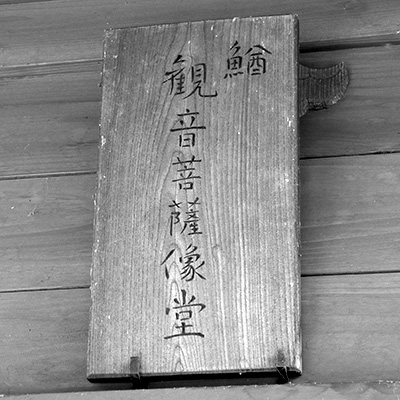 鰌
観音菩薩像堂